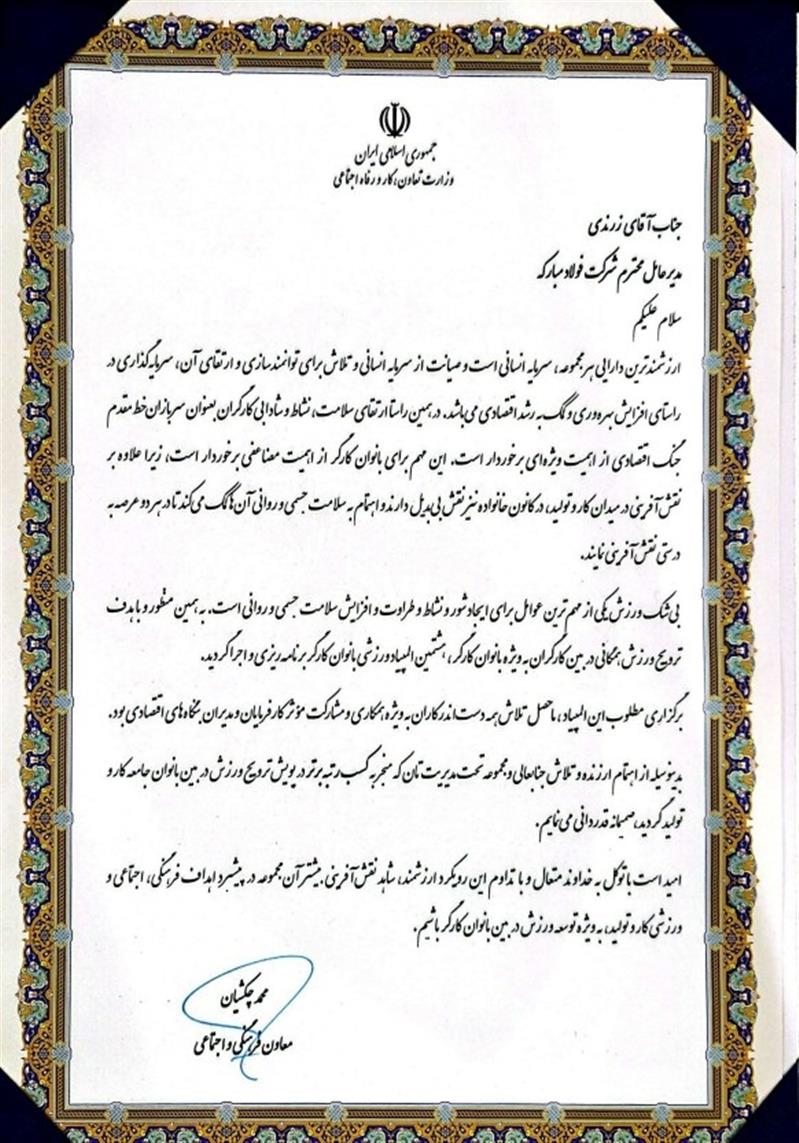 جمهوری اسلامی ایران
وزارت تعاون، کار و رفاه اجتماعی
جناب آقای زرندی
مدیر عامل محترم شرکت فولاد مبارکه
سلام علیکم
ارزشمندترین دارایی هر مجموعه، سرمایه انسانی است و صیانت از سرمایه انسانی و تلاش برای توانمندسازی و ارتقای آن، سرمایه گذاری در
راستای افزایش بهره وری و کمک به رشد اقتصادی می باشد. در همین راستا ارتقای سلامت، نشاط و شادابی کارگران بعنوان سربازان خط مقدم
جنگ اقتصادی از اهمیت ویژه ای برخوردار است. این مهم برای بانوان کارگر از اهمیت مضاعفی برخوردار است، زیرا علاوه بر
نقش آفرینی در میدان کار و تولید، در کانون خانواده نیز نقش بی بدیل دارند و اهتمام به سلامت جسمی و روانی آن ها کمک می کند تا در هر دو عرصه به
درستی نقش آفرینی نمایند.
بی شک ورزش یکی از مهم ترین عوامل برای ایجاد شور و نشاط و طراوت و افزایش سلامت جسمی و روانی است. به همین منظور و با هدف
ترویج ورزش همگانی در بین کارگران به ویژه بانوان کارگر، هشتمین المپیاد ورزشی بانوان کارگر برنامه ریزی و اجرا گردید.
برگزاری مطلوب این المپیاد، ماحصل تلاش همه دست اندرکاران به ویژه همکاری و مشارکت مؤثر کارفرمایان و مدیران بنگاه های اقتصادی بود.
بدینوسیله از اهتمام ارزنده و تلاش جنابعالی و مجموعه تحت مدیریت تان که منجر به کسب رتبه برتر در پویش ترویج ورزش در بین بانوان جامعه کار و
تولید گردید، صمیمانه قدردانی می نمایم.
امید است با توکل به خداوند متعال و با تداوم این رویکرد ارزشمند، شاهد نقش آفرینی بیشتر آن مجموعه در پیشبرد اهداف فرهنگی، اجتماعی و
ورزشی کار و تولید، به ویژه توسعه ورزش در بین بانوان کارگر باشیم.
محمد چکشیان
معاون فرهنگی و اجتماعی